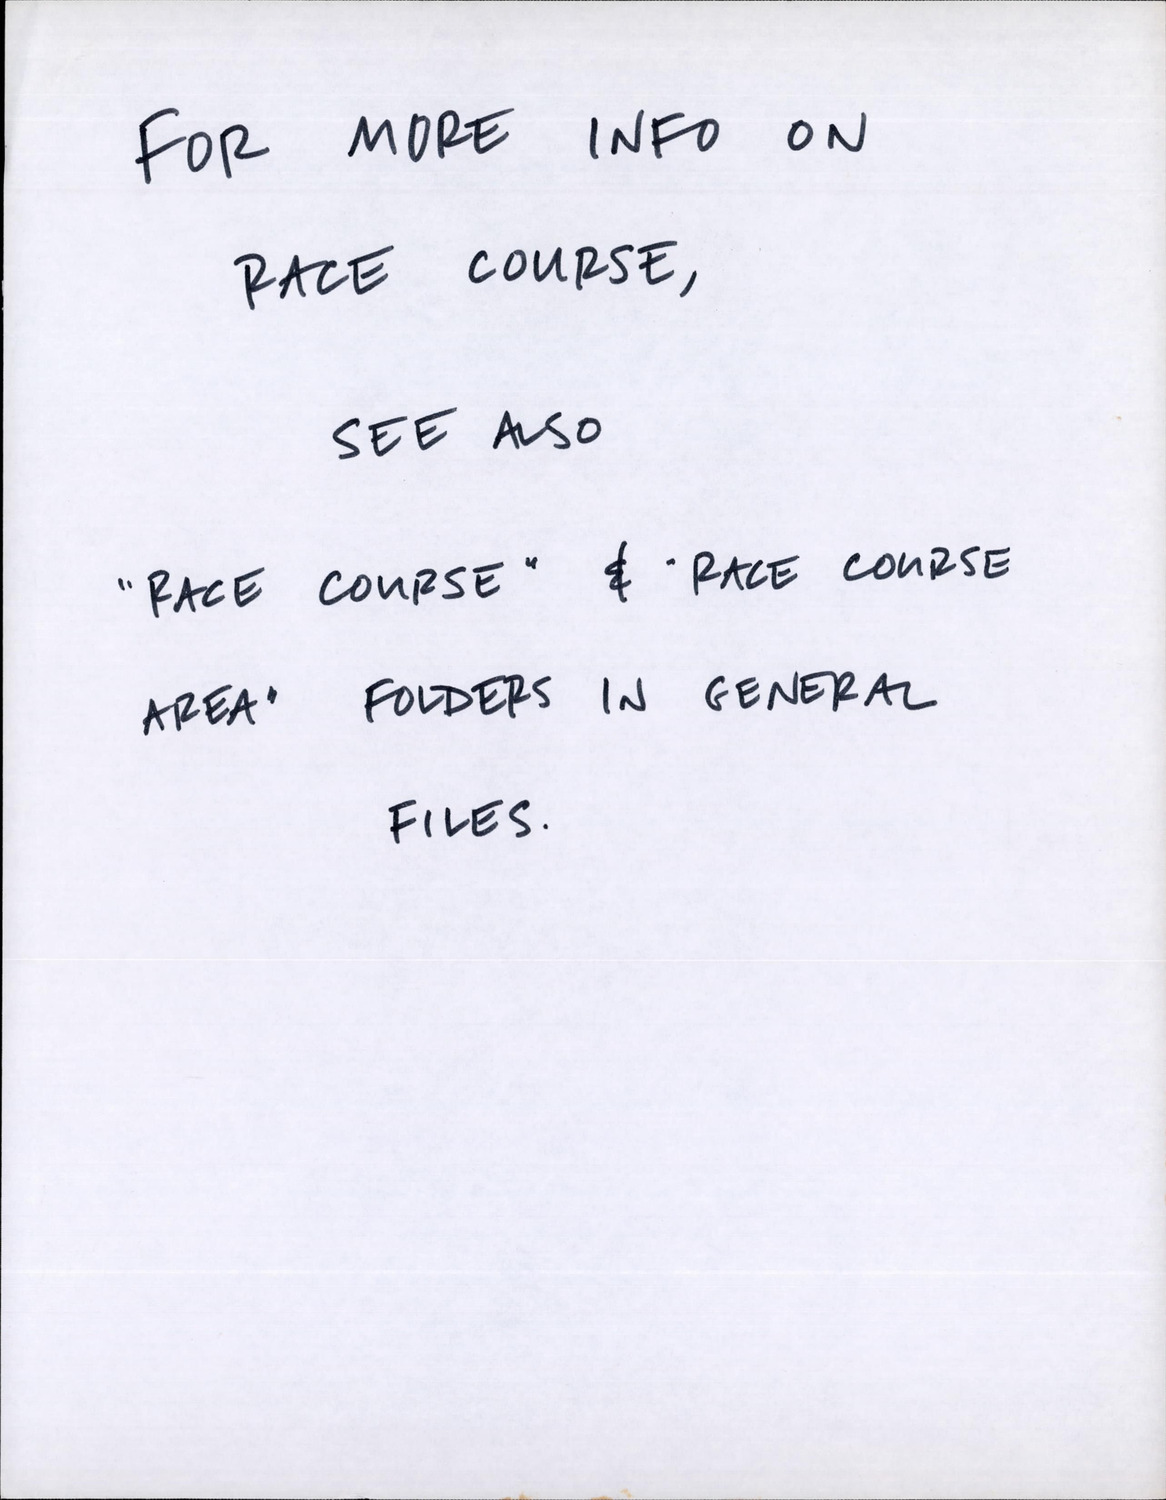 FOR MORE INFO ON
RACE COURSE,
SEE ALSO
"RACE COURSE" & "RACE COURSE
AREA" FOLDERS IN GENERAL
FILES.